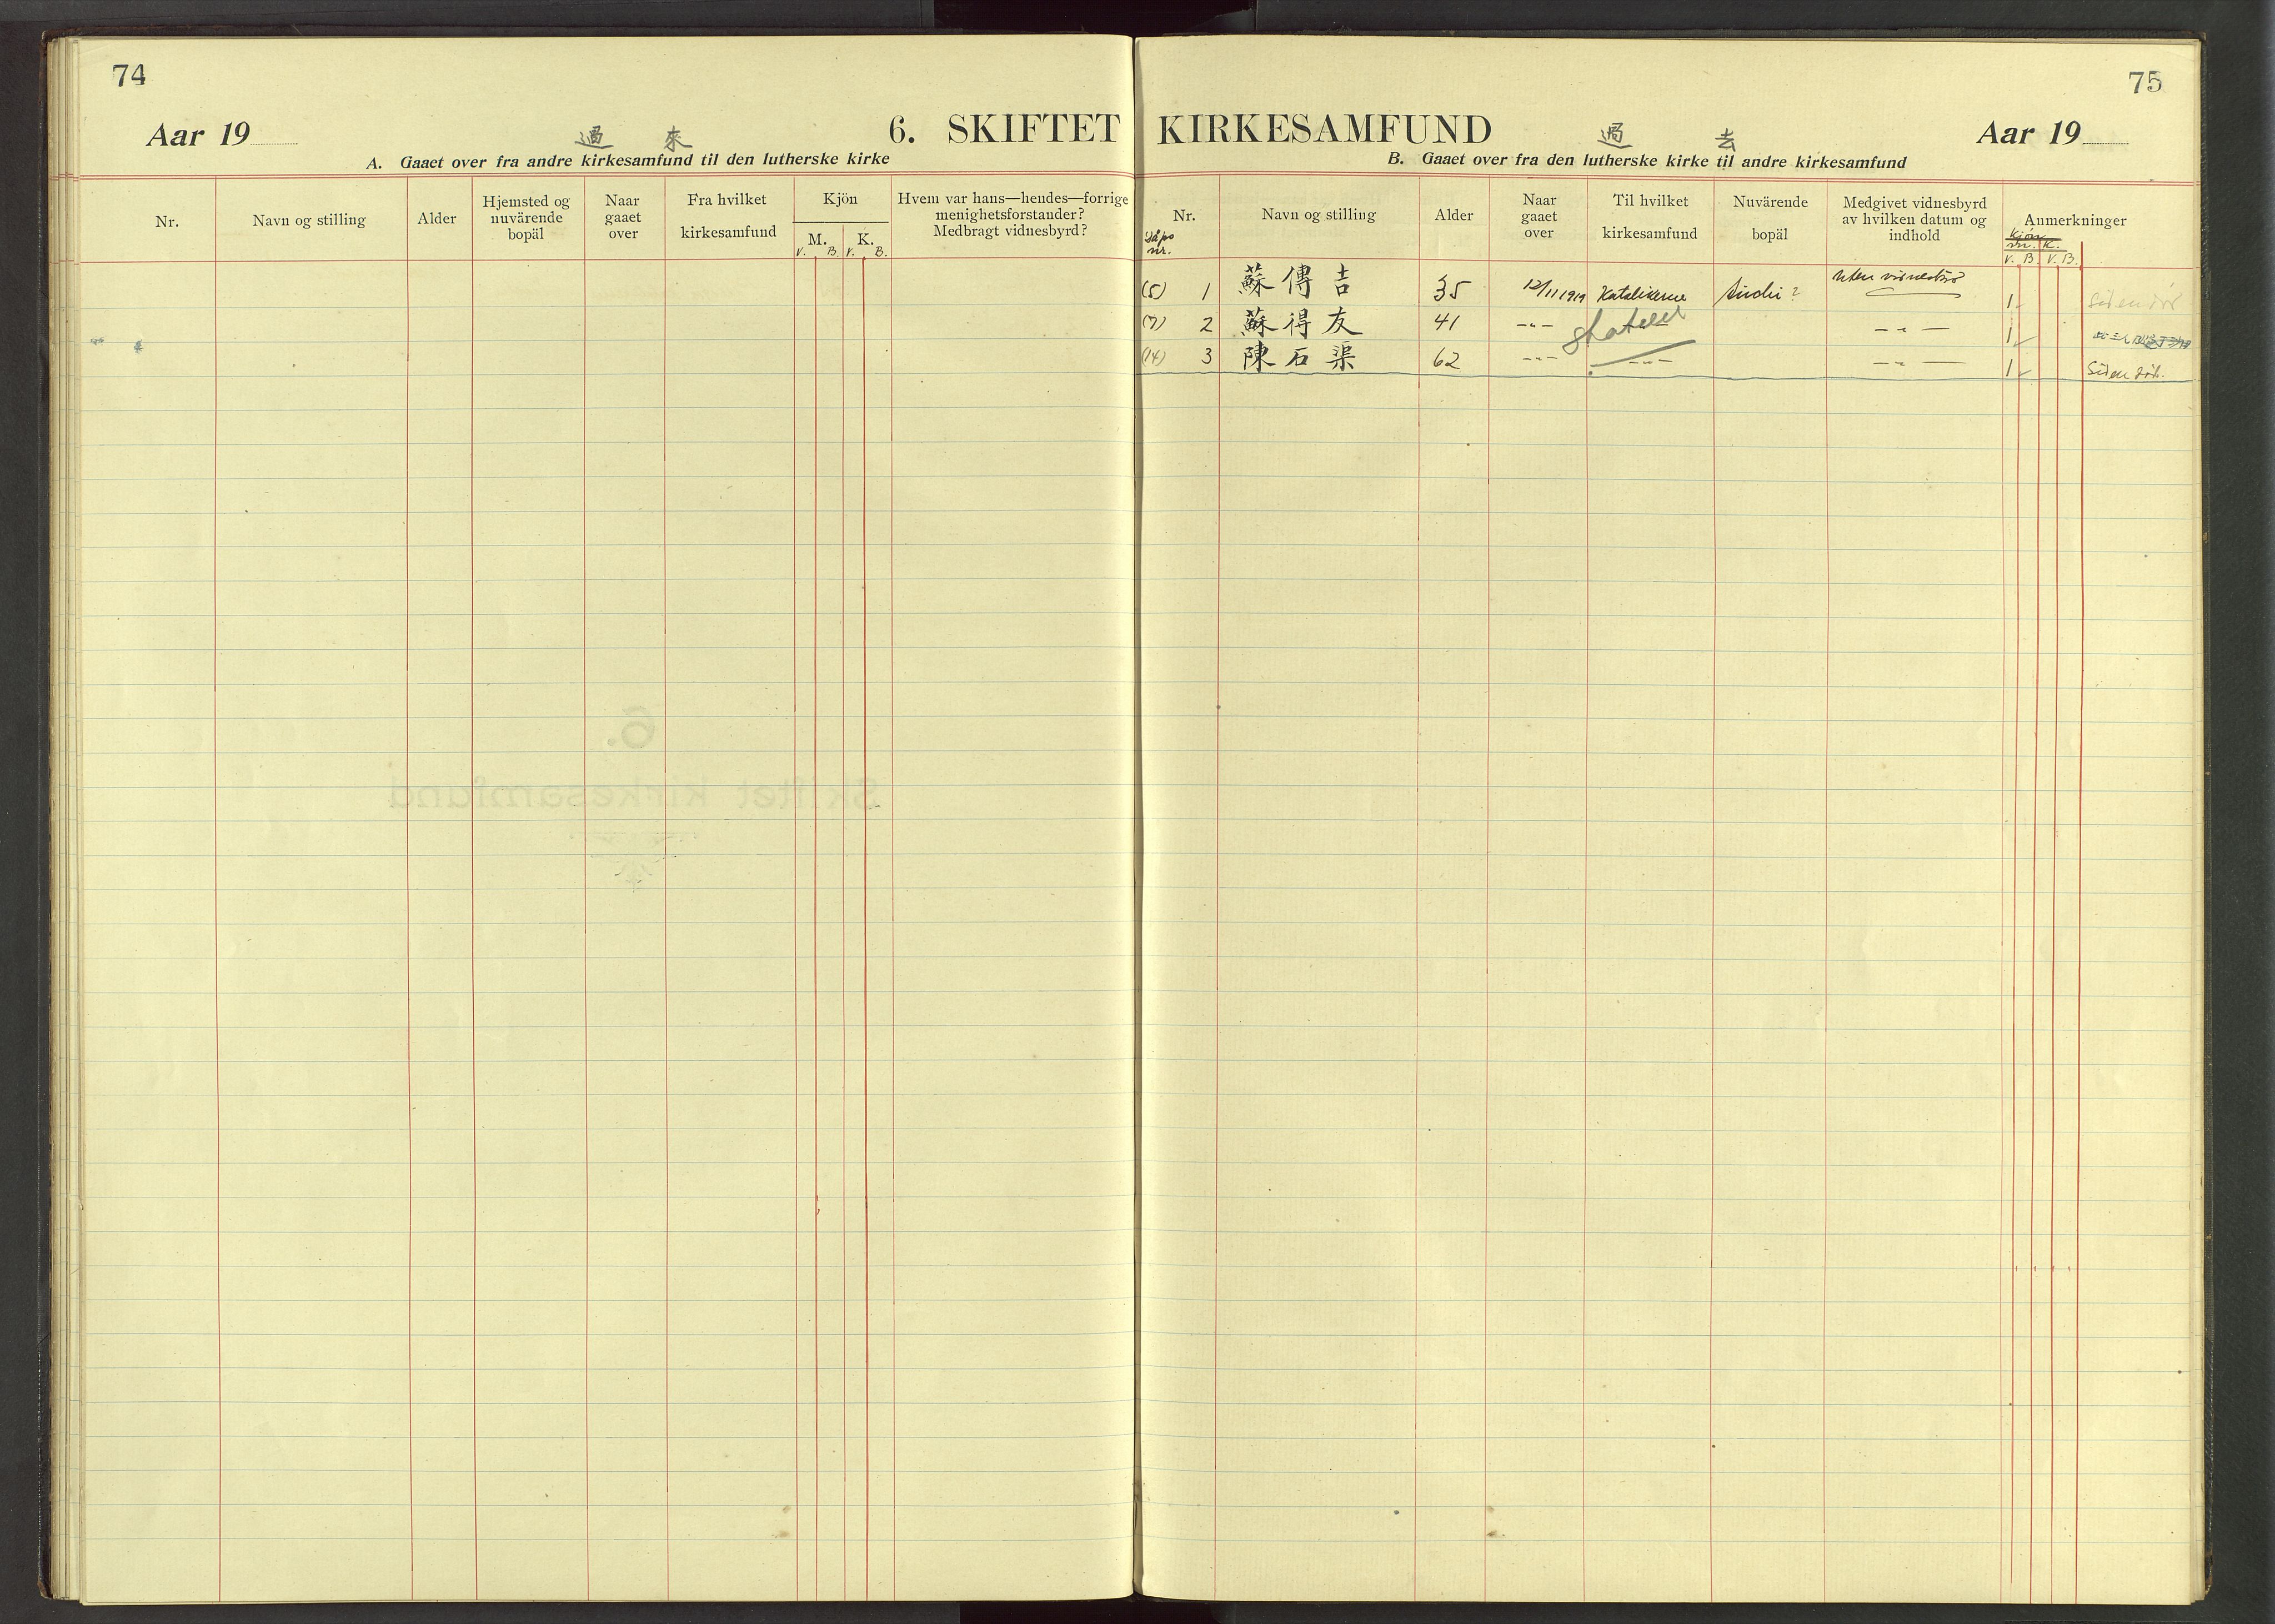 74
Aar 19
過 來
6. SKIFTET
A. Gaaet over fra andre kirkesamfund til den lutherske kirke
Nr.
Navn og stilling
Alder
Hjemsted og
nuvärende
bopäl
Naar
gaaet
over
Fra hvilket
kirkesamfund
Kjön
M. K.
V. B. V. B.
Hvem var hans—hendes—forrige
menighetsforstander?
Medbragt vidnesbyrd?
75
KIRKESAMFUND
過 去
Aar 19
B. Gaaet over fra den lutherske kirke til andre kirkesamfund
Nr.
Dåps
nr.
Navn og stilling
Alder
Naar
gaaet
over
Til hvilket
kirkesamfund
Nuvärende
bopäl
Medgivet vidnesbyrd
av hvilken datum og
indhold
Anmerkninger
Kjön
m. K.
V. B. V. B.
(5) 1 蘇傳吉 35 12/11 1919 Katolikerne ? Uten 1
(7) 2 蘇得友 41 -"- -"- 1
(14) 3 陳石渠 62 -"- -"- -"- 1 Siden död.